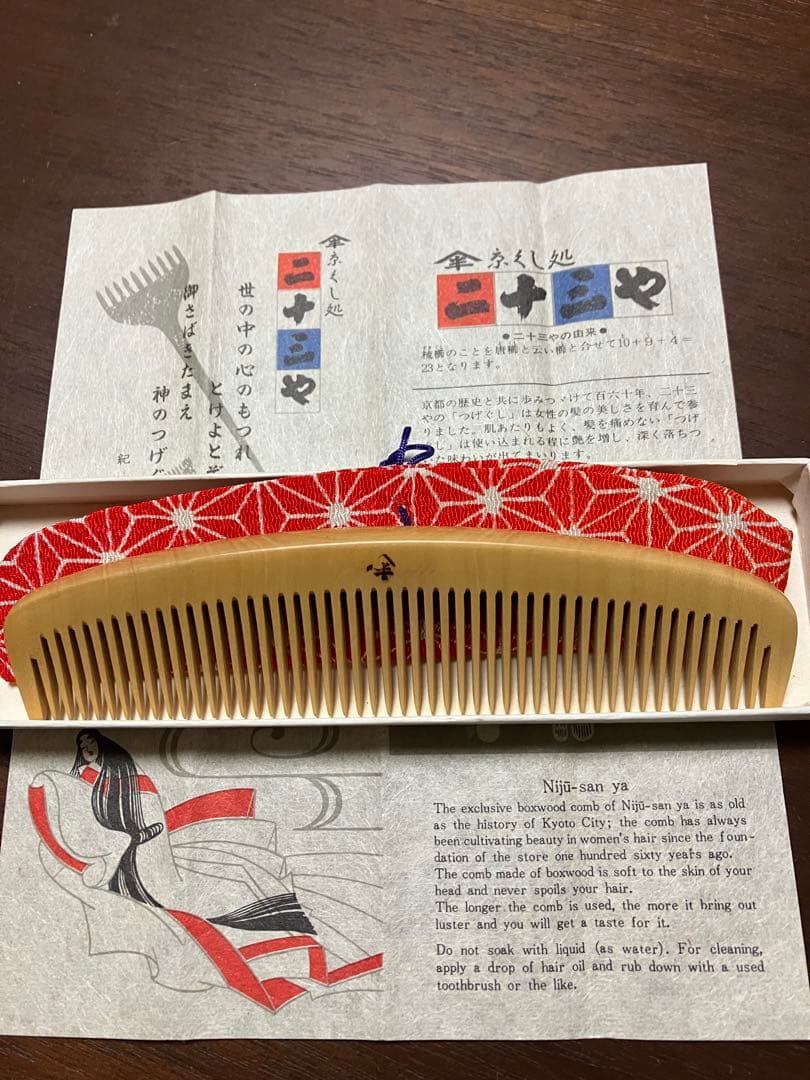 京くし処
二十三や
世の中の心のもつれ
とけよとぞ
御さばきたまえ
神のつげぐ
紀
京くし処
二十三や
●二十三やの由来●
櫛のことを唐櫛と云い櫛と合せて10+9+4=
23となります。
京都の歴史と共に歩みつゞけて百六十年、二十三
やの「つげぐし」は女性の髪の美しさを育んで参
りました。肌あたりもよく、髪を痛めない「つげ
し」は使い込まれる程に艶を増し、深く落ちつ
た味わいが出てまいります。
Nijū-san ya
The exclusive boxwood comb of Nijū-san ya is as old
as the history of Kyoto City; the comb has always
been cultivating beauty in women's hair since the foun-
dation of the store one hundred sixty years ago.
The comb made of boxwood is soft to the skin of your
head and never spoils your hair.
The longer the comb is used, the more it bring out
luster and you will get a taste for it.
Do not soak with liquid (as water). For cleaning,
apply a drop of hair oil and rub down with a used
toothbrush or the like.